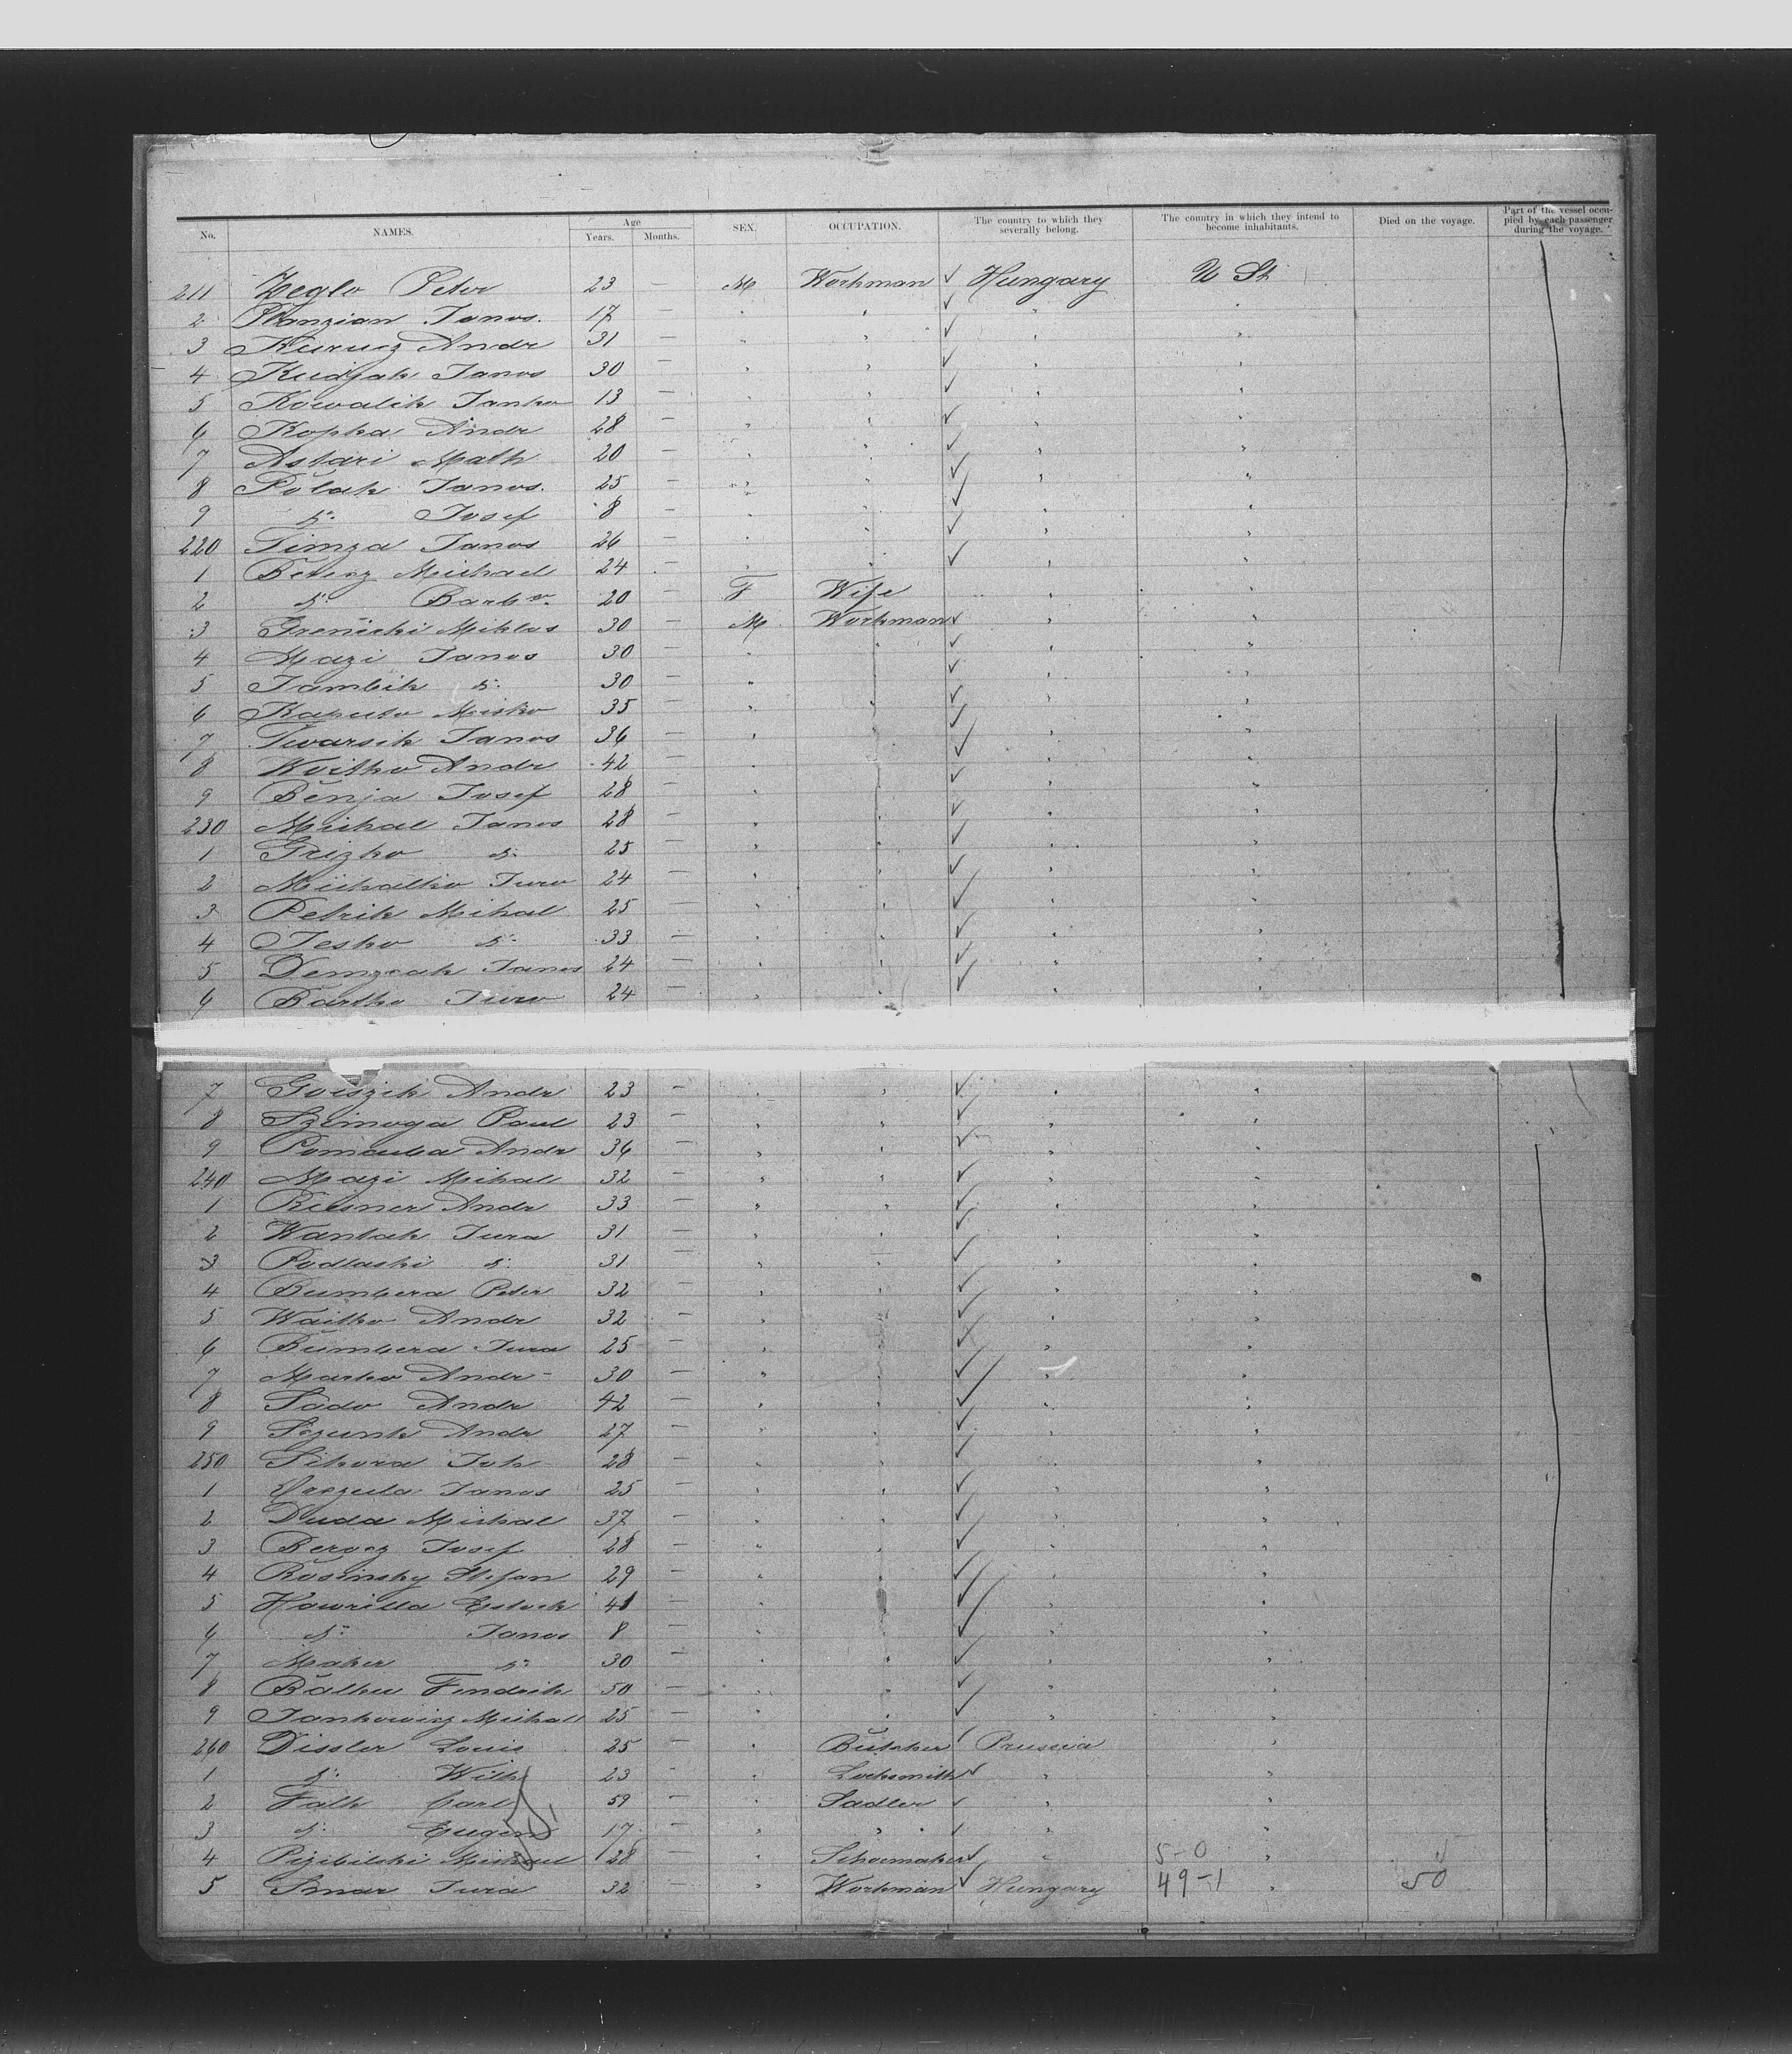 No. NAMES. Age Years. Months. SEX. OCCUPATION. The country to which they severally belong. The country in which they intend to become inhabitants. Died on the voyage. Part of the vessel occupied by each passenger during the voyage.
211 Zeglo Peter 23 — M Workman ✓ Hungary U St
2 Janos. 17 — " " ✓ " "
3 Kurucz Andr 31 — " " ✓ " "
4 Kudjak Janos 30 — " " ✓ " "
5 Kowalik Janko 13 — " " ✓ " "
6 Kopka Andr 28 — " " ✓ " "
7 Astari Math 20 — " " ✓ " "
8 Polak Janos. 25 — " " ✓ " "
9 do. Josef 8 — " " ✓ " "
220 Timza Janos 26 — " " ✓ " "
1 Michael 24 — " " ✓ " "
2 do. Barb 20 — F Wife " "
3 Miklos 30 — M Workman ✓ " "
4 Mazi Janos 30 — " " ✓ " "
5 Jambik do. 30 — " " ✓ " "
6 Kaputo Misko 35 — " " ✓ " "
7 Twarsik Janos 36 — " " ✓ " "
8 Woitko Andr 42 — " " ✓ " "
9 Benja Josef 28 — " " ✓ " "
230 Michal Janos 28 — " " ✓ " "
1 Grizko do. 25 — " " ✓ " "
2 Michalko Juro 24 — " " ✓ " "
3 Petrik Mihal 25 — " " ✓ " "
4 Jesko do. 33 — " " ✓ " "
5 Demzcak Janos 24 — " " ✓ " "
6 Bartko Juro 24 — " " ✓ " "
7 Andr 23 — " " ✓ " "
8 Szimoga Paul 23 — " " ✓ " "
9 Andr 36 — " " ✓ " "
240 Mazi Mihal 32 — " " ✓ " "
1 Andr 33 — " " ✓ " "
2 Jura 31 — " " ✓ " "
3 Podlaski do. 31 — " " ✓ " "
4 Bumbera Peter 32 — " " ✓ " "
5 Waitko Andr 32 — " " ✓ " "
6 Bumbera Jura 25 — " " ✓ " "
7 Marko Andr 30 — " " ✓ " "
8 Sado Andr 42 — " " ✓ " "
9 Andr 27 — " " ✓ " "
250 Sikora Joh 28 — " " ✓ " "
1 Janos 25 — " " ✓ " "
2 Duda Michal 37 — " " ✓ " "
3 Berecz Josef 28 — " " ✓ " "
4 Rosinsky Stefan 29 — " " ✓ " "
5 Hawrilla 41 — " " ✓ " "
6 do. Janos 8 — " " ✓ " "
7 Maker do. 30 — " " ✓ " "
8 50 — " " ✓ " "
9 Jankowicz Michal 25 — " " ✓ " "
260 Dissler Louis 25 — " Butcher ✓ Prussia "
1 do. Wilh 23 — " Locksmith ✓ " "
2 Falk Carl 59 — " Sadler ✓ " "
3 do. Eugen 17 — " " ✓ " "
4 Michael 28 — " Schoemaker ✓ " 5-0 "
5 Smar Jura 32 — " Workman ✓ Hungary 49-1 " 50